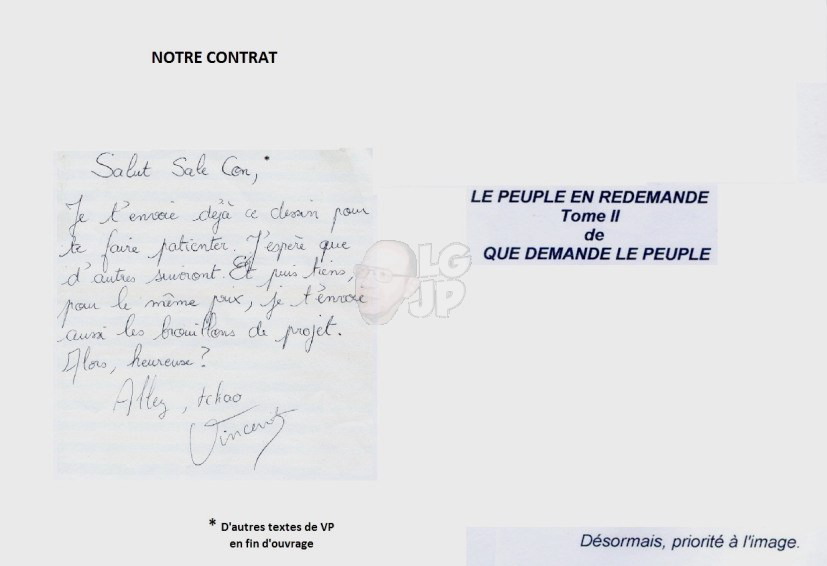 NOTRE CONTRAT
Salut Sale Con, *
Je t'envoie déjà ce dessin pour
te faire patienter. J'espère que
d'autres suivront. Et puis tiens,
pour le même prix, je t'envoie
aussi les brouillons de projet.
Alors, heureuse?
Allez, tchao
Vincent
* D'autres textes de VP
en fin d'ouvrage
LE PEUPLE EN REDEMANDE
Tome II
de
QUE DEMANDE LE PEUPLE
LG
JP
Désormais, priorité à l'image.